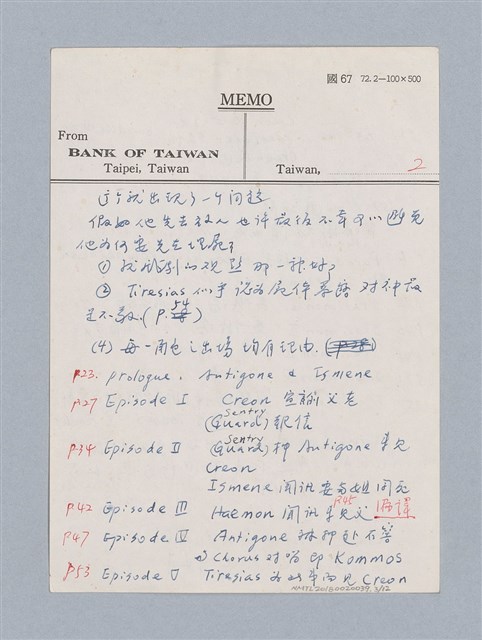 國67 72.2-100×500
MEMO
From
BANK OF TAIWAN
Taipei, Taiwan
Taiwan, 2
这个就出现了一个问题
假如他先去救人也许最后不幸可以避免
他为何要先去埋葬?
① 找戏剧的观点那一种好?
② Tiresias 们 认为屍体暴露 对神最
是不敬. (P. 54)
(4) 每一角色之出场均有理由.
P23. prologue. Antigone & Ismene
P27 Episode I Creon 宣谕父老
Sentry
(Guard) 報信
P34 Episode II Sentry
(Guard) 押 Antigone 来见
Creon
Ismene 聞訊要与姐同死
P42 Episode III Haemon 聞訊来见父 P45
P47 Episode IV Antigone 被押赴石窖
Chorus 对唱即 Kommos
P53 Episode V Tiresias 为 而见 Creon
NMTL20160020039, 3/12